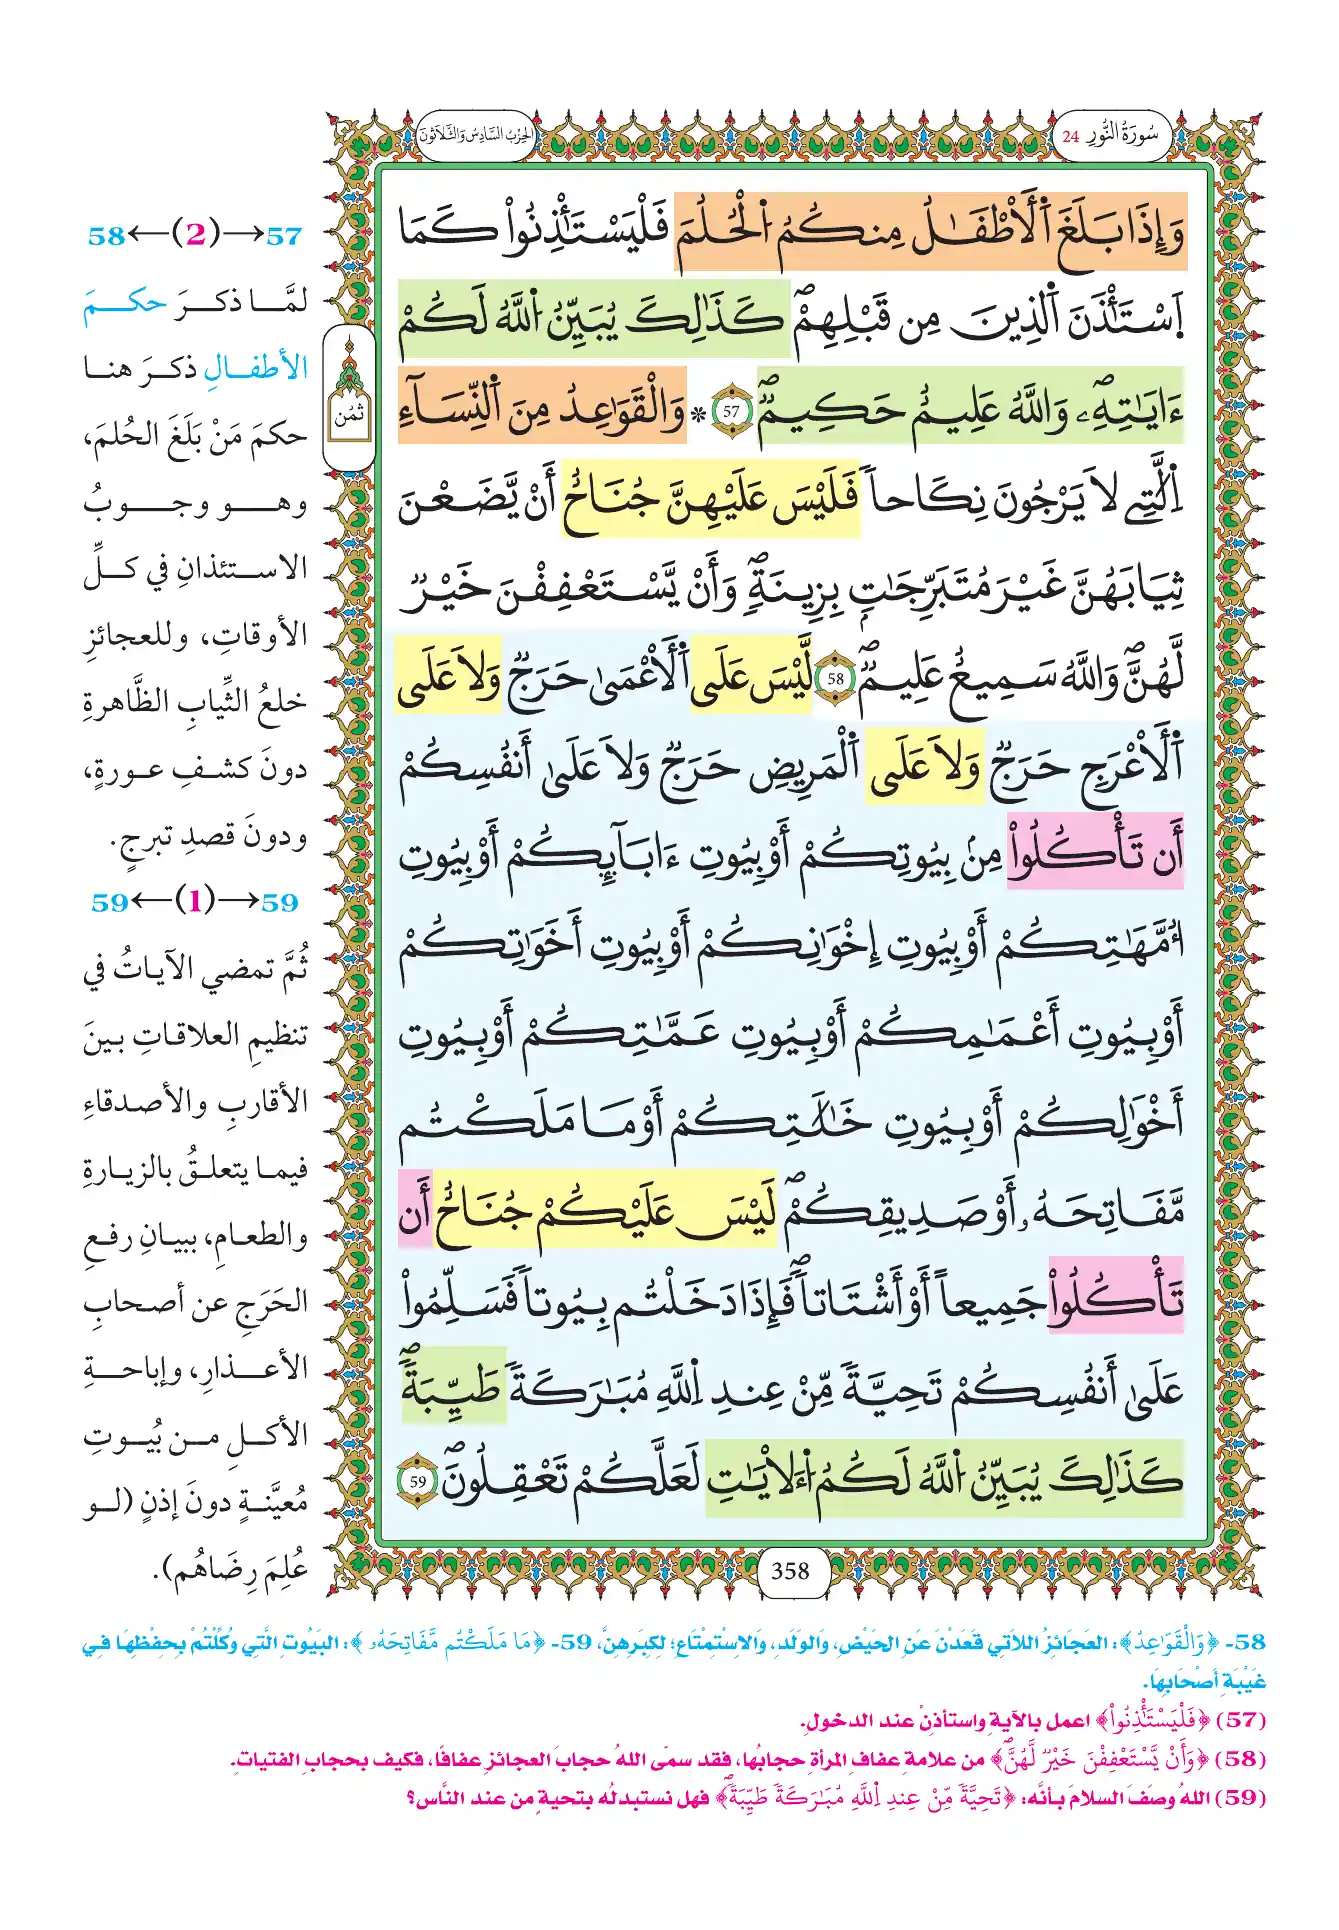 سُورَةُ النُّورِ 24
الحِزْبُ السَّادِسُ وَالثَّلَاثُونَ
وَإِذَا بَلَغَ اَ۬لْأَطْفَٰلُ مِنكُمُ اُ۬لْحُلُمَ فَلْيَسْتَٰٔذِنُواْ كَمَا
اَ۪سْتَٰٔذَنَ اَ۬لذِينَ مِن قَبْلِهِمْۖ كَذَٰلِكَ يُبَيِّنُ اُ۬للَّهُ لَكُمْ
ءَايَٰتِهِۦۖ وَاللَّهُ عَلِيمٌ حَكِيمٌۖ 57 * وَالْقَوَٰعِدُ مِنَ اَ۬لنِّسَآءِ
اِ۬لَّٰتِے لَا يَرْجُونَ نِكَاحاٗ فَلَيْسَ عَلَيْهِنَّ جُنَاحٌ أَنْ يَّضَعْنَ
ثِيَابَهُنَّ غَيْرَ مُتَبَرِّجَٰتِۭ بِزِينَةٖۖ وَأَنْ يَّسْتَعْفِفْنَ خَيْرٞ
لَّهُنَّۖ وَاللَّهُ سَمِيعٌ عَلِيمٞۖ 58 لَّيْسَ عَلَى اَ۬لْأَعْمَىٰ حَرَجٞ وَلَا عَلَى
اَ۬لْأَعْرَجِ حَرَجٞ وَلَا عَلَى اَ۬لْمَرِيضِ حَرَجٞ وَلَا عَلَىٰ أَنفُسِكُمْ
أَن تَأْكُلُواْ مِنۢ بِيُوتِكُمْ أَوْ بِيُوتِ ءَابَآئِكُمْ أَوْ بِيُوتِ
أُمَّهَٰتِكُمْ أَوْ بِيُوتِ إِخْوَٰنِكُمْ أَوْ بِيُوتِ أَخَوَٰتِكُمْ
أَوْ بِيُوتِ أَعْمَٰمِكُمْ أَوْ بِيُوتِ عَمَّٰتِكُمْ أَوْ بِيُوتِ
أَخْوَٰلِكُمْ أَوْ بِيُوتِ خَٰلَٰتِكُمْ أَوْ مَا مَلَكْتُم
مَّفَاتِحَهُۥ أَوْ صَدِيقِكُمْۖ لَيْسَ عَلَيْكُمْ جُنَاحٌ أَن
تَأْكُلُواْ جَمِيعاً أَوْ أَشْتَاتاٗۖ فَإِذَا دَخَلْتُم بِيُوتاٗ فَسَلِّمُواْ
عَلَىٰ أَنفُسِكُمْ تَحِيَّةٗ مِّنْ عِندِ اِ۬للَّهِ مُبَٰرَكَةٗ طَيِّبَةٗۖ
كَذَٰلِكَ يُبَيِّنُ اُ۬للَّهُ لَكُمُ اُ۬لْأٓيَٰتِ لَعَلَّكُمْ تَعْقِلُونَۖ 59
358
ثُمُن
57→(2)←58
لمَّا ذكرَ حكمَ
الأطفالِ ذكرَ هنا
حكمَ مَنْ بَلَغَ الحُلمَ،
وهو وجوبُ
الاستئذانِ في كلِّ
الأوقاتِ، وللعجائزِ
خلعُ الثِّيابِ الظَّاهرةِ
دونَ كشفِ عورةٍ،
ودونَ قصدِ تبرجٍ.
59→(1)←59
ثُمَّ تمضي الآياتُ في
تنظيمِ العلاقاتِ بينَ
الأقاربِ والأصدقاءِ
فيما يتعلقُ بالزيارةِ
والطعامِ، ببيانِ رفعِ
الحَرَجِ عن أصحابِ
الأعذارِ، وإباحةِ
الأكلِ من بُيوتِ
مُعيَّنةٍ دونَ إذنٍ (لو
عُلِمَ رِضَاهُم).
58- ﴿وَالْقَوَٰعِدُ﴾: العَجَائِزُ اللاتي قَعَدْنَ عَنِ الحَيْضِ، وَالوَلَدِ، وَالاسْتِمْتَاعِ؛ لِكِبَرِهِنَّ، 59- ﴿مَا مَلَكْتُم مَّفَاتِحَهُۥ﴾: البُيُوتِ الَّتِي وُكِّلْتُمْ بِحِفْظِهَا فِي
غَيْبَةِ أَصْحَابِهَا.
(57) ﴿فَلْيَسْتَٰٔذِنُواْ﴾ اعمل بالآيةِ واستأذنْ عند الدخولِ.
(58) ﴿وَأَنْ يَّسْتَعْفِفْنَ خَيْرٞ لَّهُنَّۖ﴾ من علامةِ عفافِ المرأةِ حجابُها، فقد سمّى اللهُ حجابَ العجائزِ عفافًا، فكيف بحجابِ الفتياتِ.
(59) اللهُ وصَفَ السلامَ بأنَّه: ﴿تَحِيَّةٗ مِّنْ عِندِ اِ۬للَّهِ مُبَٰرَكَةٗ طَيِّبَةٗۖ﴾ فهل نستبدلُه بتحيةٍ من عند النَّاس؟